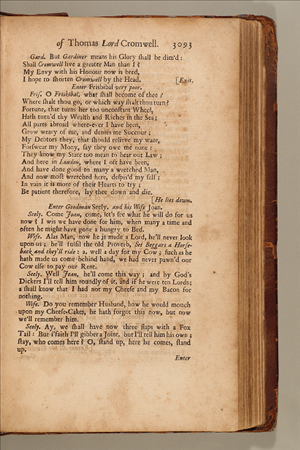 of Thomas Lord Cromwell. 3093
Gard. But Gardiner means his Glory shall be dim'd:
Shall Cromwell live a greater Man than I?
My Envy with his Honour now is bred,
I hope to shorten Cromwell by the Head. [Exit.
Enter Friskibal very poor.
Fris. O Friskibal, what shall become of thee?
Where shalt thou go, or which way shalt thou turn?
Fortune, that turns her too unconstant Wheel,
Hath turn'd thy Wealth and Riches in the Sea;
All parts abroad where-ever I have been,
Grow weary of me, and denies me Succour;
My Debtors they, that should relieve my want,
Forswear my Mony, say they owe me none:
They know my State too mean to bear out Law;
And here in London, where I oft have been,
And have done good to many a wretched Man,
And now most wretched here, despis'd my self;
In vain it is more of their Hearts to try;
Be patient therefore, lay thee down and die.
[He lies down.
Enter Goodman Seely, and his Wife Joan.
Seely. Come Joan, come, let's see what he will do for us
now? I wis we have done for him, when many a time and
often he might have gone a hungry to Bed.
Wife. Alas Man, now he is made a Lord, he'll never look
upon us; he'll fulfil the old Proverb, Set Beggars a Horse-
back and they'll ride: a, well a day for my Cow; such as he
hath made us come behind hand, we had never pawn'd our
Cow else to pay our Rent.
Seely. Well Joan, he'll come this way; and by God's
Dickers I'll tell him roundly of it, and if he were ten Lords;
a shall know that I had not my Cheese and my Bacon for
nothing.
Wife. Do you remember Husband, how he would mouch
upon my Cheese-Cakes, he hath forgot this now, but now
we'll remember him.
Seely. Ay, we shall have now three flaps with a Fox
Tail: But i'faith I'll gibber a Joint, but I'll tell him his own;
stay, who comes here? O, stand up, here he comes, stand
up.
Enter